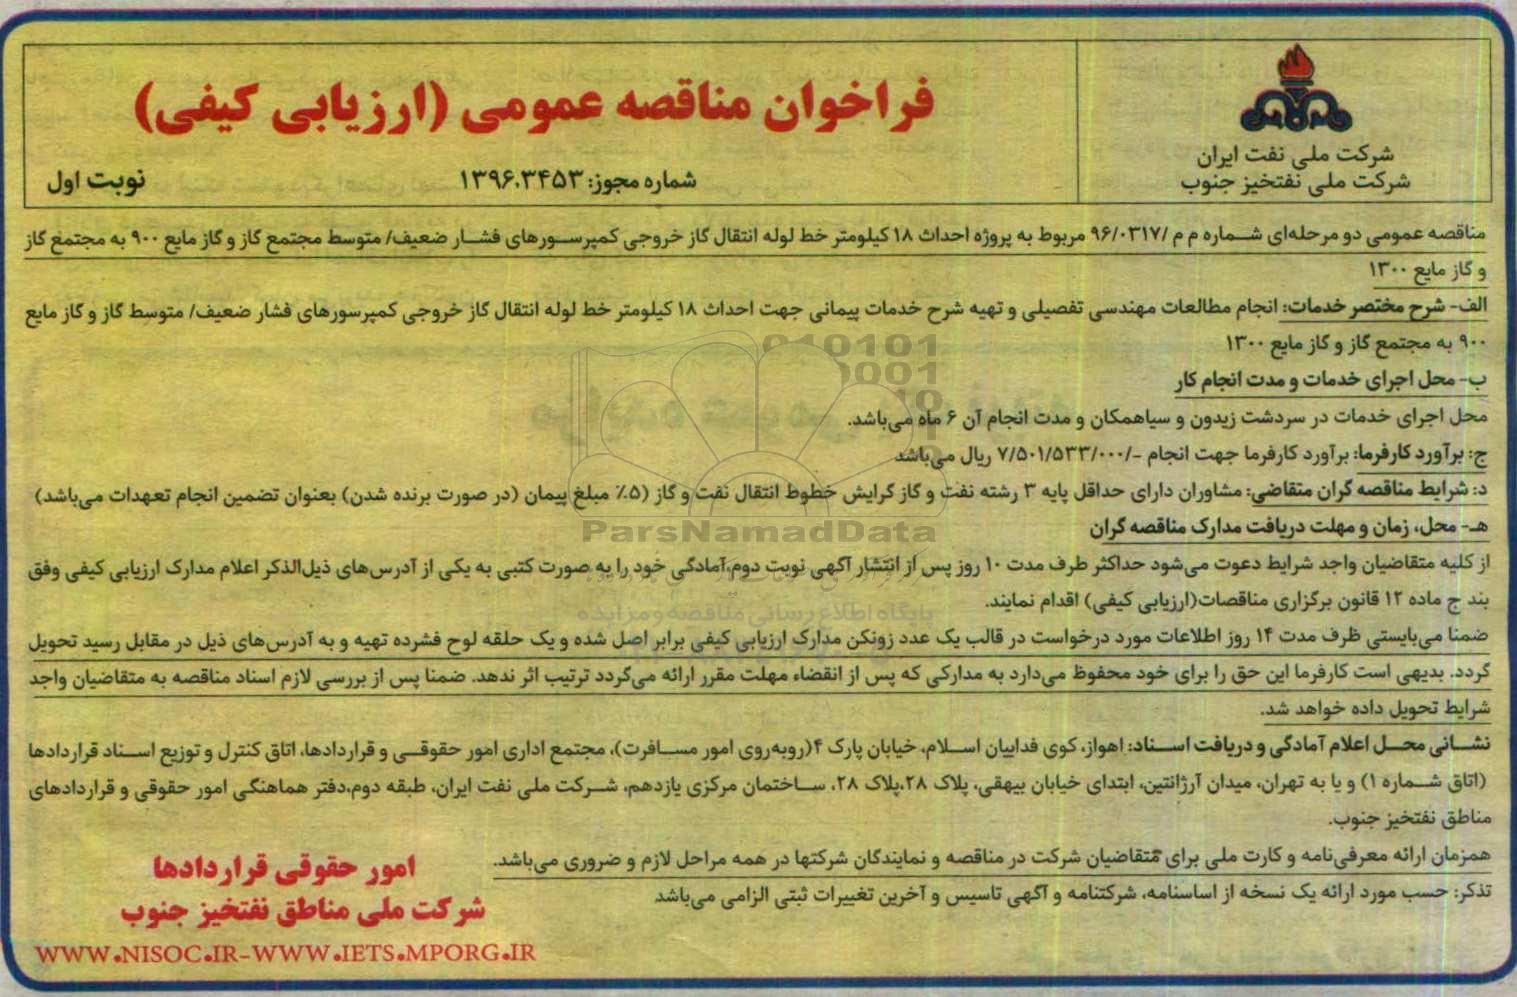 شرکت ملی نفت ایران
شرکت ملی نفتخیز جنوب
فراخوان مناقصه عمومی (ارزیابی کیفی)
شماره مجوز: ۱۳۹۶.۳۴۵۳
نوبت اول
مناقصه عمومی دو مرحله‌ای شماره م م /۹۶/۰۳۱۷ مربوط به پروژه احداث ۱۸ کیلومتر خط لوله انتقال گاز خروجی کمپرسورهای فشار ضعیف/ متوسط مجتمع گاز و گاز مایع ۹۰۰ به مجتمع گاز
و گاز مایع ۱۳۰۰
الف- شرح مختصر خدمات: انجام مطالعات مهندسی تفصیلی و تهیه شرح خدمات پیمانی جهت احداث ۱۸ کیلومتر خط لوله انتقال گاز خروجی کمپرسورهای فشار ضعیف/ متوسط گاز و گاز مایع
۹۰۰ به مجتمع گاز و گاز مایع ۱۳۰۰
ب- محل اجرای خدمات و مدت انجام کار
محل اجرای خدمات در سردشت زیدون و سیاهمکان و مدت انجام آن ۶ ماه می‌باشد.
ج: برآورد کارفرما: برآورد کارفرما جهت انجام -/۷/۵۰۱/۵۳۳/۰۰۰ ریال می‌باشد
د: شرایط مناقصه گران متقاضی: مشاوران دارای حداقل پایه ۳ رشته نفت و گاز گرایش خطوط انتقال نفت و گاز (۵٪ مبلغ پیمان (در صورت برنده شدن) بعنوان تضمین انجام تعهدات می‌باشد)
هـ- محل، زمان و مهلت دریافت مدارک مناقصه گران
از کلیه متقاضیان واجد شرایط دعوت می‌شود حداکثر ظرف مدت ۱۰ روز پس از انتشار آگهی نوبت دوم،آمادگی خود را به صورت کتبی به یکی از آدرس‌های ذیل‌الذکر اعلام مدارک ارزیابی کیفی وفق
بند ج ماده ۱۲ قانون برگزاری مناقصات(ارزیابی کیفی) اقدام نمایند.
ضمنا می‌بایستی ظرف مدت ۱۴ روز اطلاعات مورد درخواست در قالب یک عدد زونکن مدارک ارزیابی کیفی برابر اصل شده و یک حلقه لوح فشرده تهیه و به آدرس‌های ذیل در مقابل رسید تحویل
گردد. بدیهی است کارفرما این حق را برای خود محفوظ می‌دارد به مدارکی که پس از انقضاء مهلت مقرر ارائه می‌گردد ترتیب اثر ندهد. ضمنا پس از بررسی لازم اسناد مناقصه به متقاضیان واجد
شرایط تحویل داده خواهد شد.
نشانی محل اعلام آمادگی و دریافت اسناد: اهواز، کوی فداییان اسلام، خیابان پارک ۴(روبه‌روی امور مسافرت)، مجتمع اداری امور حقوقی و قراردادها، اتاق کنترل و توزیع اسناد قراردادها
(اتاق شماره ۱) و یا به تهران، میدان آرژانتین، ابتدای خیابان بیهقی، پلاک ۲۸،پلاک ۲۸، ساختمان مرکزی یازدهم، شرکت ملی نفت ایران، طبقه دوم،دفتر هماهنگی امور حقوقی و قراردادهای
مناطق نفتخیز جنوب.
همزمان ارائه معرفی‌نامه و کارت ملی برای متقاضیان شرکت در مناقصه و نمایندگان شرکتها در همه مراحل لازم و ضروری می‌باشد.
تذکر: حسب مورد ارائه یک نسخه از اساسنامه، شرکتنامه و آگهی تاسیس و آخرین تغییرات ثبتی الزامی می‌باشد
امور حقوقی قراردادها
شرکت ملی مناطق نفتخیز جنوب
WWW.NISOC.IR-WWW.IETS.MPORG.IR
ParsNamadData
پایگاه اطلاع رسانی مناقصه و مزایده